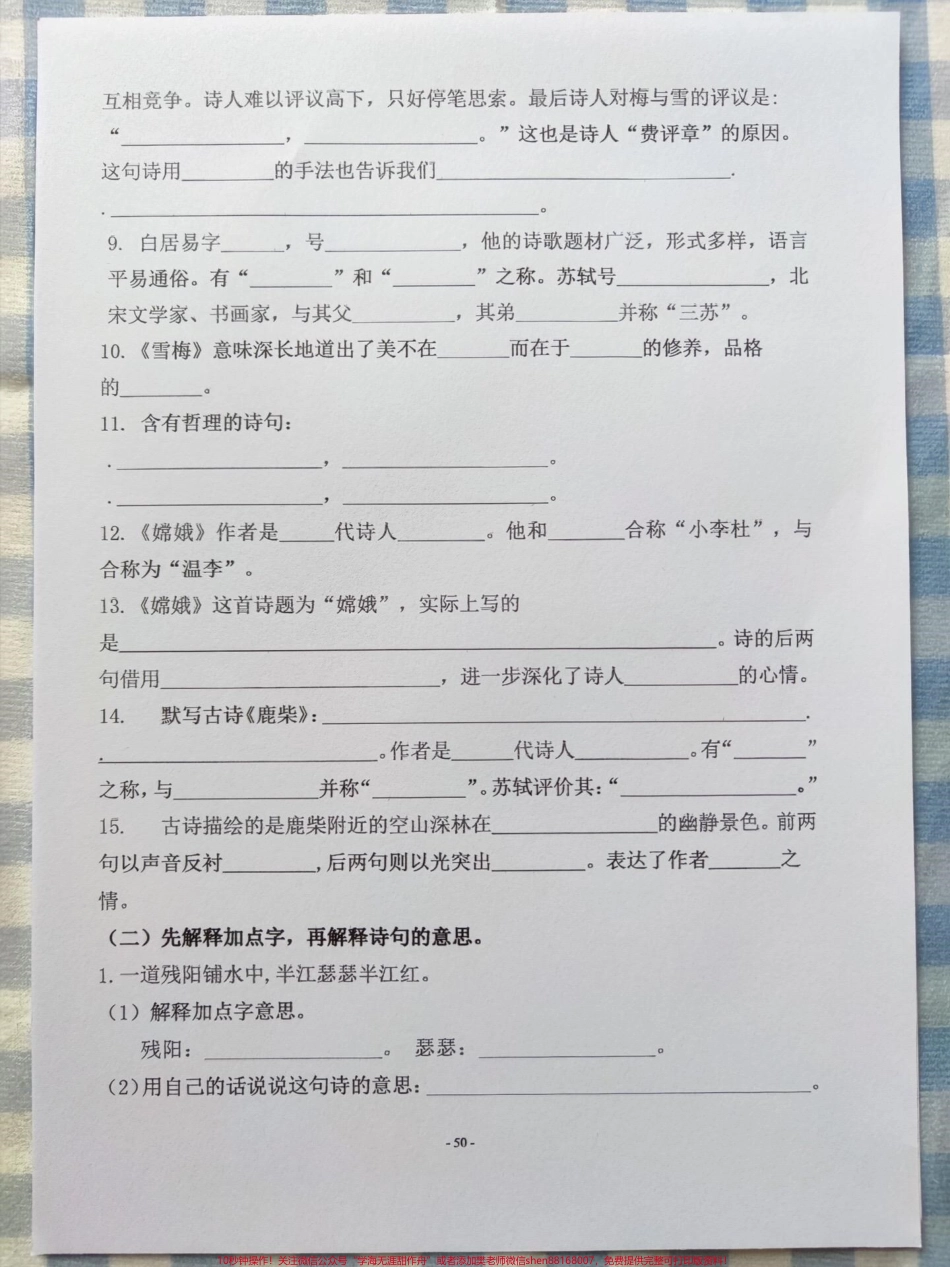 互相竞争。诗人难以评议高下，只好停笔思索。最后诗人对梅与雪的评议是：
“______________，______________。”这也是诗人“费评章”的原因。
这句诗用________的手法也告诉我们__________________________.
.______________________________________。
9. 白居易字______，号____________，他的诗歌题材广泛，形式多样，语言
平易通俗。有“________”和“________”之称。苏轼号______________，北
宋文学家、书画家，与其父__________，其弟__________并称“三苏”。
10.《雪梅》意味深长地道出了美不在_______而在于_______的修养，品格
的________。
11. 含有哲理的诗句：
.____________________，____________________。
.____________________，____________________。
12.《嫦娥》作者是_____代诗人________。他和_______合称“小李杜”，与
合称为“温李”。
13.《嫦娥》这首诗题为“嫦娥”，实际上写的
是__________________________________________________________。诗的后两
句借用___________________________，进一步深化了诗人___________的心情。
14. 默写古诗《鹿柴》：_______________________________________________.
.__________________________。作者是______代诗人___________。有“_______”
之称，与______________并称“_________”。苏轼评价其：“_________________。”
15. 古诗描绘的是鹿柴附近的空山深林在________________的幽静景色。前两
句以声音反衬_________,后两句则以光突出_________。表达了作者_______之
情。
（二）先解释加点字，再解释诗句的意思。
1.一道残阳铺水中,半江瑟瑟半江红。
（1）解释加点字意思。
残阳：_________________。 瑟瑟：_________________。
（2）用自己的话说说这句诗的意思：_____________________________________。
- 50 -
10秒钟操作！关注微信公众号“学海无涯甜作舟”或者添加果老师微信shen88168007，免费提供完整可打印版资料！